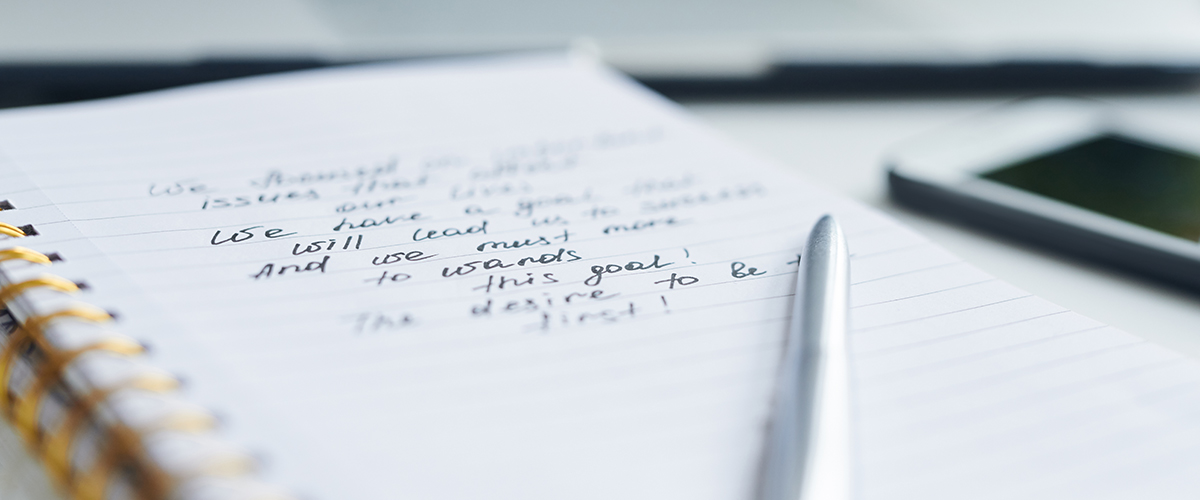 We
issues that affect
our lives
We have a goal that
will lead us to success
And we must more
to wards
this goal!
The desire to be
first!